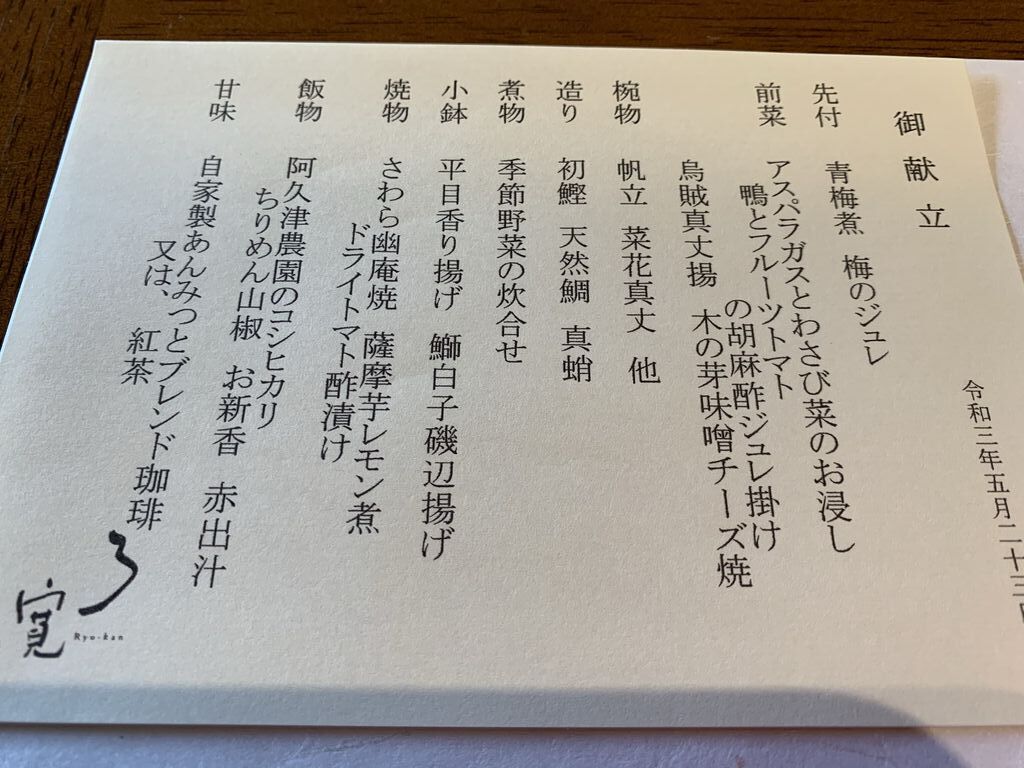 御献立
令和三年五月二十三日
先付 青梅煮 梅のジュレ
前菜 アスパラガスとわさび菜のお浸し
鴨とフルーツトマト
の胡麻酢ジュレ掛け
烏賊真丈揚 木の芽味噌チーズ焼
椀物 帆立 菜花真丈 他
造り 初鰹 天然鯛 真蛸
煮物 季節野菜の炊合せ
小鉢 平目香り揚げ 鰤白子磯辺揚げ
焼物 さわら幽庵焼 薩摩芋レモン煮
ドライトマト酢漬け
飯物 阿久津農園のコシヒカリ
ちりめん山椒 お新香 赤出汁
甘味 自家製あんみつとブレンド珈琲
又は、紅茶
了寛
Ryo-kan